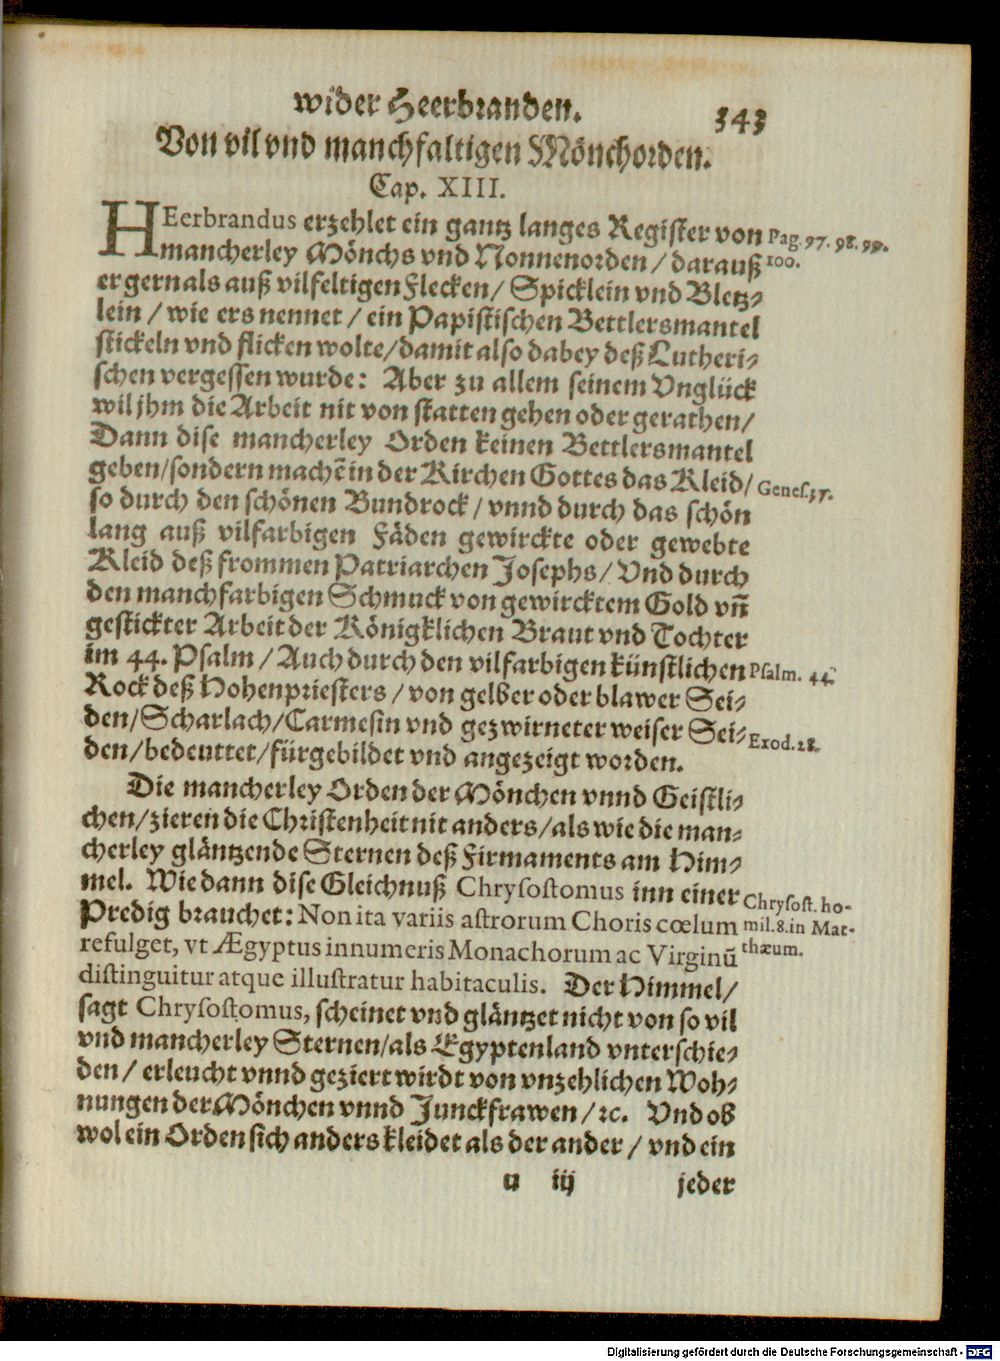 wider Heerbranden. 343
Von vil vnd manchfaltigen Mönchorden.
Cap. XIII.
HEerbrandus erzehlet ein gantz langes Register von Pag. 97. 98. 99.
mancherley Mönchs vnd Nonnenorden / darauß 100.
er gern als auß vilfeltigen Flecken / Spicklein vnd Bletz⸗
lein / wie ers nennet / ein Papistischen Bettlersmantel
stickeln vnd flicken wolte / damit also dabey deß Lutheri⸗
schen vergessen wurde: Aber zu allem seinem Vnglück
wil jhm die Arbeit nit von statten gehen oder gerathen /
Dann dise mancherley Orden keinen Bettlersmantel
geben / sondern machẽ in der Kirchen Gottes das Kleid / Genes. 37.
so durch den schönen Bundrock / vnnd durch das schön
lang auß vilfarbigen Fäden gewirckte oder gewebte
Kleid deß frommen Patriarchen Josephs / Vnd durch
den manchfarbigen Schmuck von gewircktem Gold vñ
gestickter Arbeit der Königklichen Braut vnd Tochter
im 44. Psalm / Auch durch den vilfarbigen künstlichen Psalm. 44.
Rock deß Hohenpriesters / von gelber oder blawer Sei⸗
den / Scharlach / Carmesin vnd gezwirneter weiser Sei⸗ Exod. 28.
den / bedeuttet / fürgebildet vnd angezeigt worden.
Die mancherley Orden der Mönchen vnnd Geistli⸗
chen / zieren die Christenheit nit anders / als wie die man⸗
cherley gläntzende Sternen deß Firmaments am Him⸗
mel. Wie dann dise Gleichnuß Chrysostomus inn einer Chrysost. ho-
Predig brauchet: Non ita variis astrorum Choris cœlum mil. 8. in Mat-
refulget, vt Ægyptus innumeris Monachorum ac Virginũ thæum.
distinguitur atque illustratur habitaculis. Der Himmel /
sagt Chrysostomus, scheinet vnd gläntzet nicht von so vil
vnd mancherley Sternen / als Egyptenland vnterschie⸗
den / erleucht vnnd geziert wirdt von vnzehlichen Woh⸗
nungen der Mönchen vnnd Junckfrawen / ꝛc. Vnd ob
wol ein Orden sich anders kleidet als der ander / vnd ein
u iij jeder
Digitalisierung gefördert durch die Deutsche Forschungsgemeinschaft - DFG